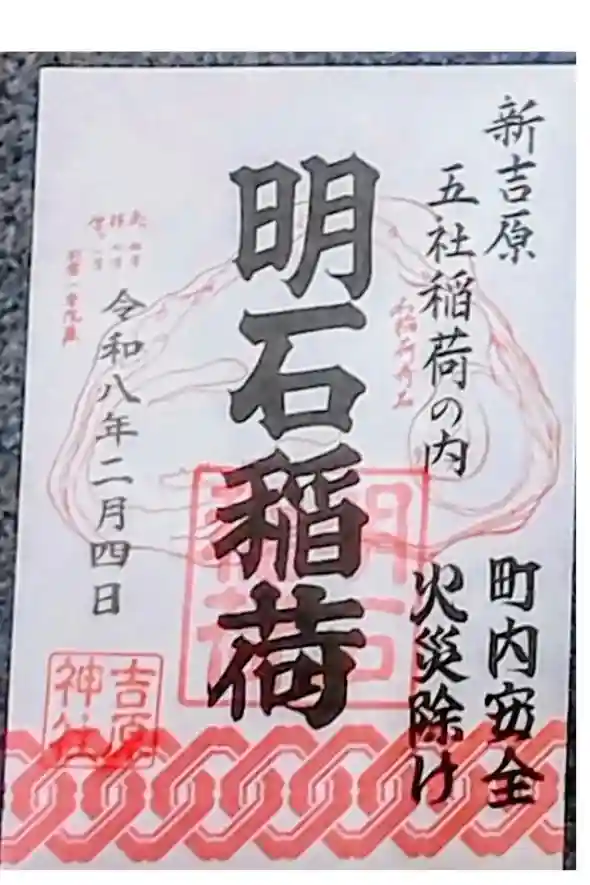 新吉原
五社稲荷の内
町内安全
火災除け
明石稲荷
明石
稲荷
令和八年二月四日
吉原
神社